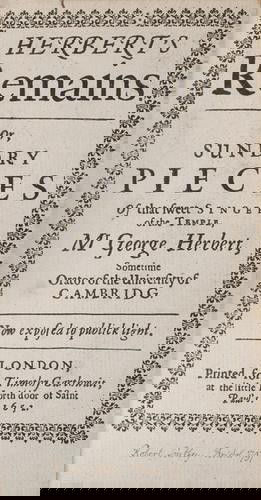 HERBERT'S
Remains.
Or,
SUNDRY
PIECES
Of that sweet SINGER
of the TEMPLE
Mr George Herbert,
Sometime
Orator of the University of
CAMBRIDG.
Now exposed to publick light.
LONDON,
Printed for Timothy Garthwait
at the little
North door of Saint
Paul's
Robert